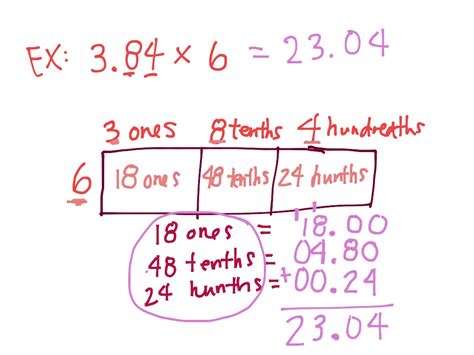 EX: 3.84 × 6 = 23.04
3 ones 8 tenths 4 hundreaths
6 18 ones 48 tenths 24 hunths
18 ones = 18.00
48 tenths = 04.80
24 hunths = +00.24
23.04